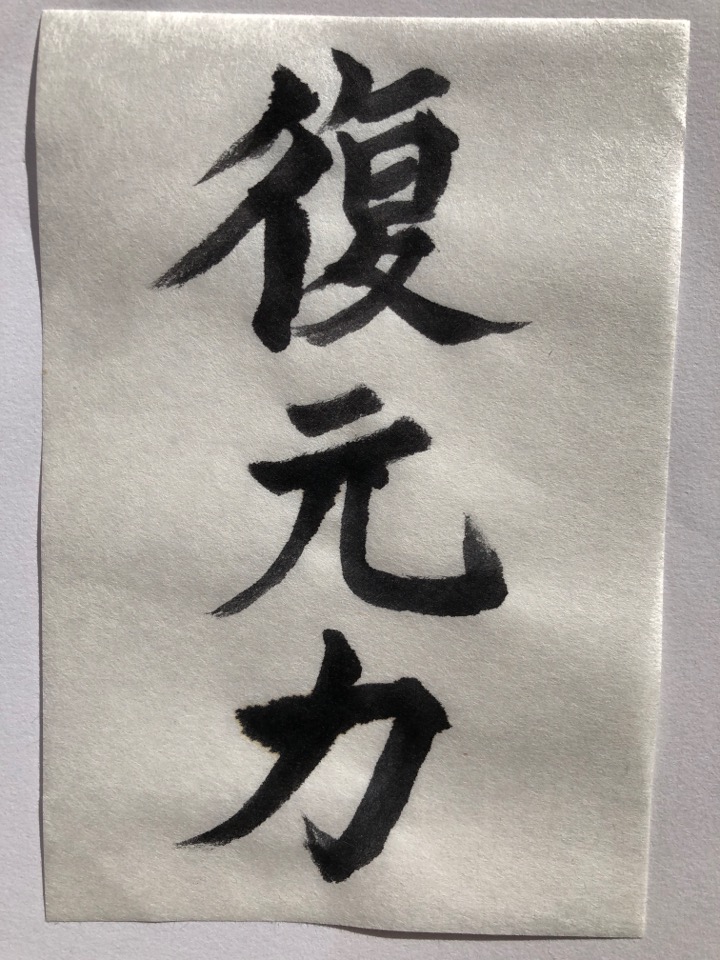 復元力